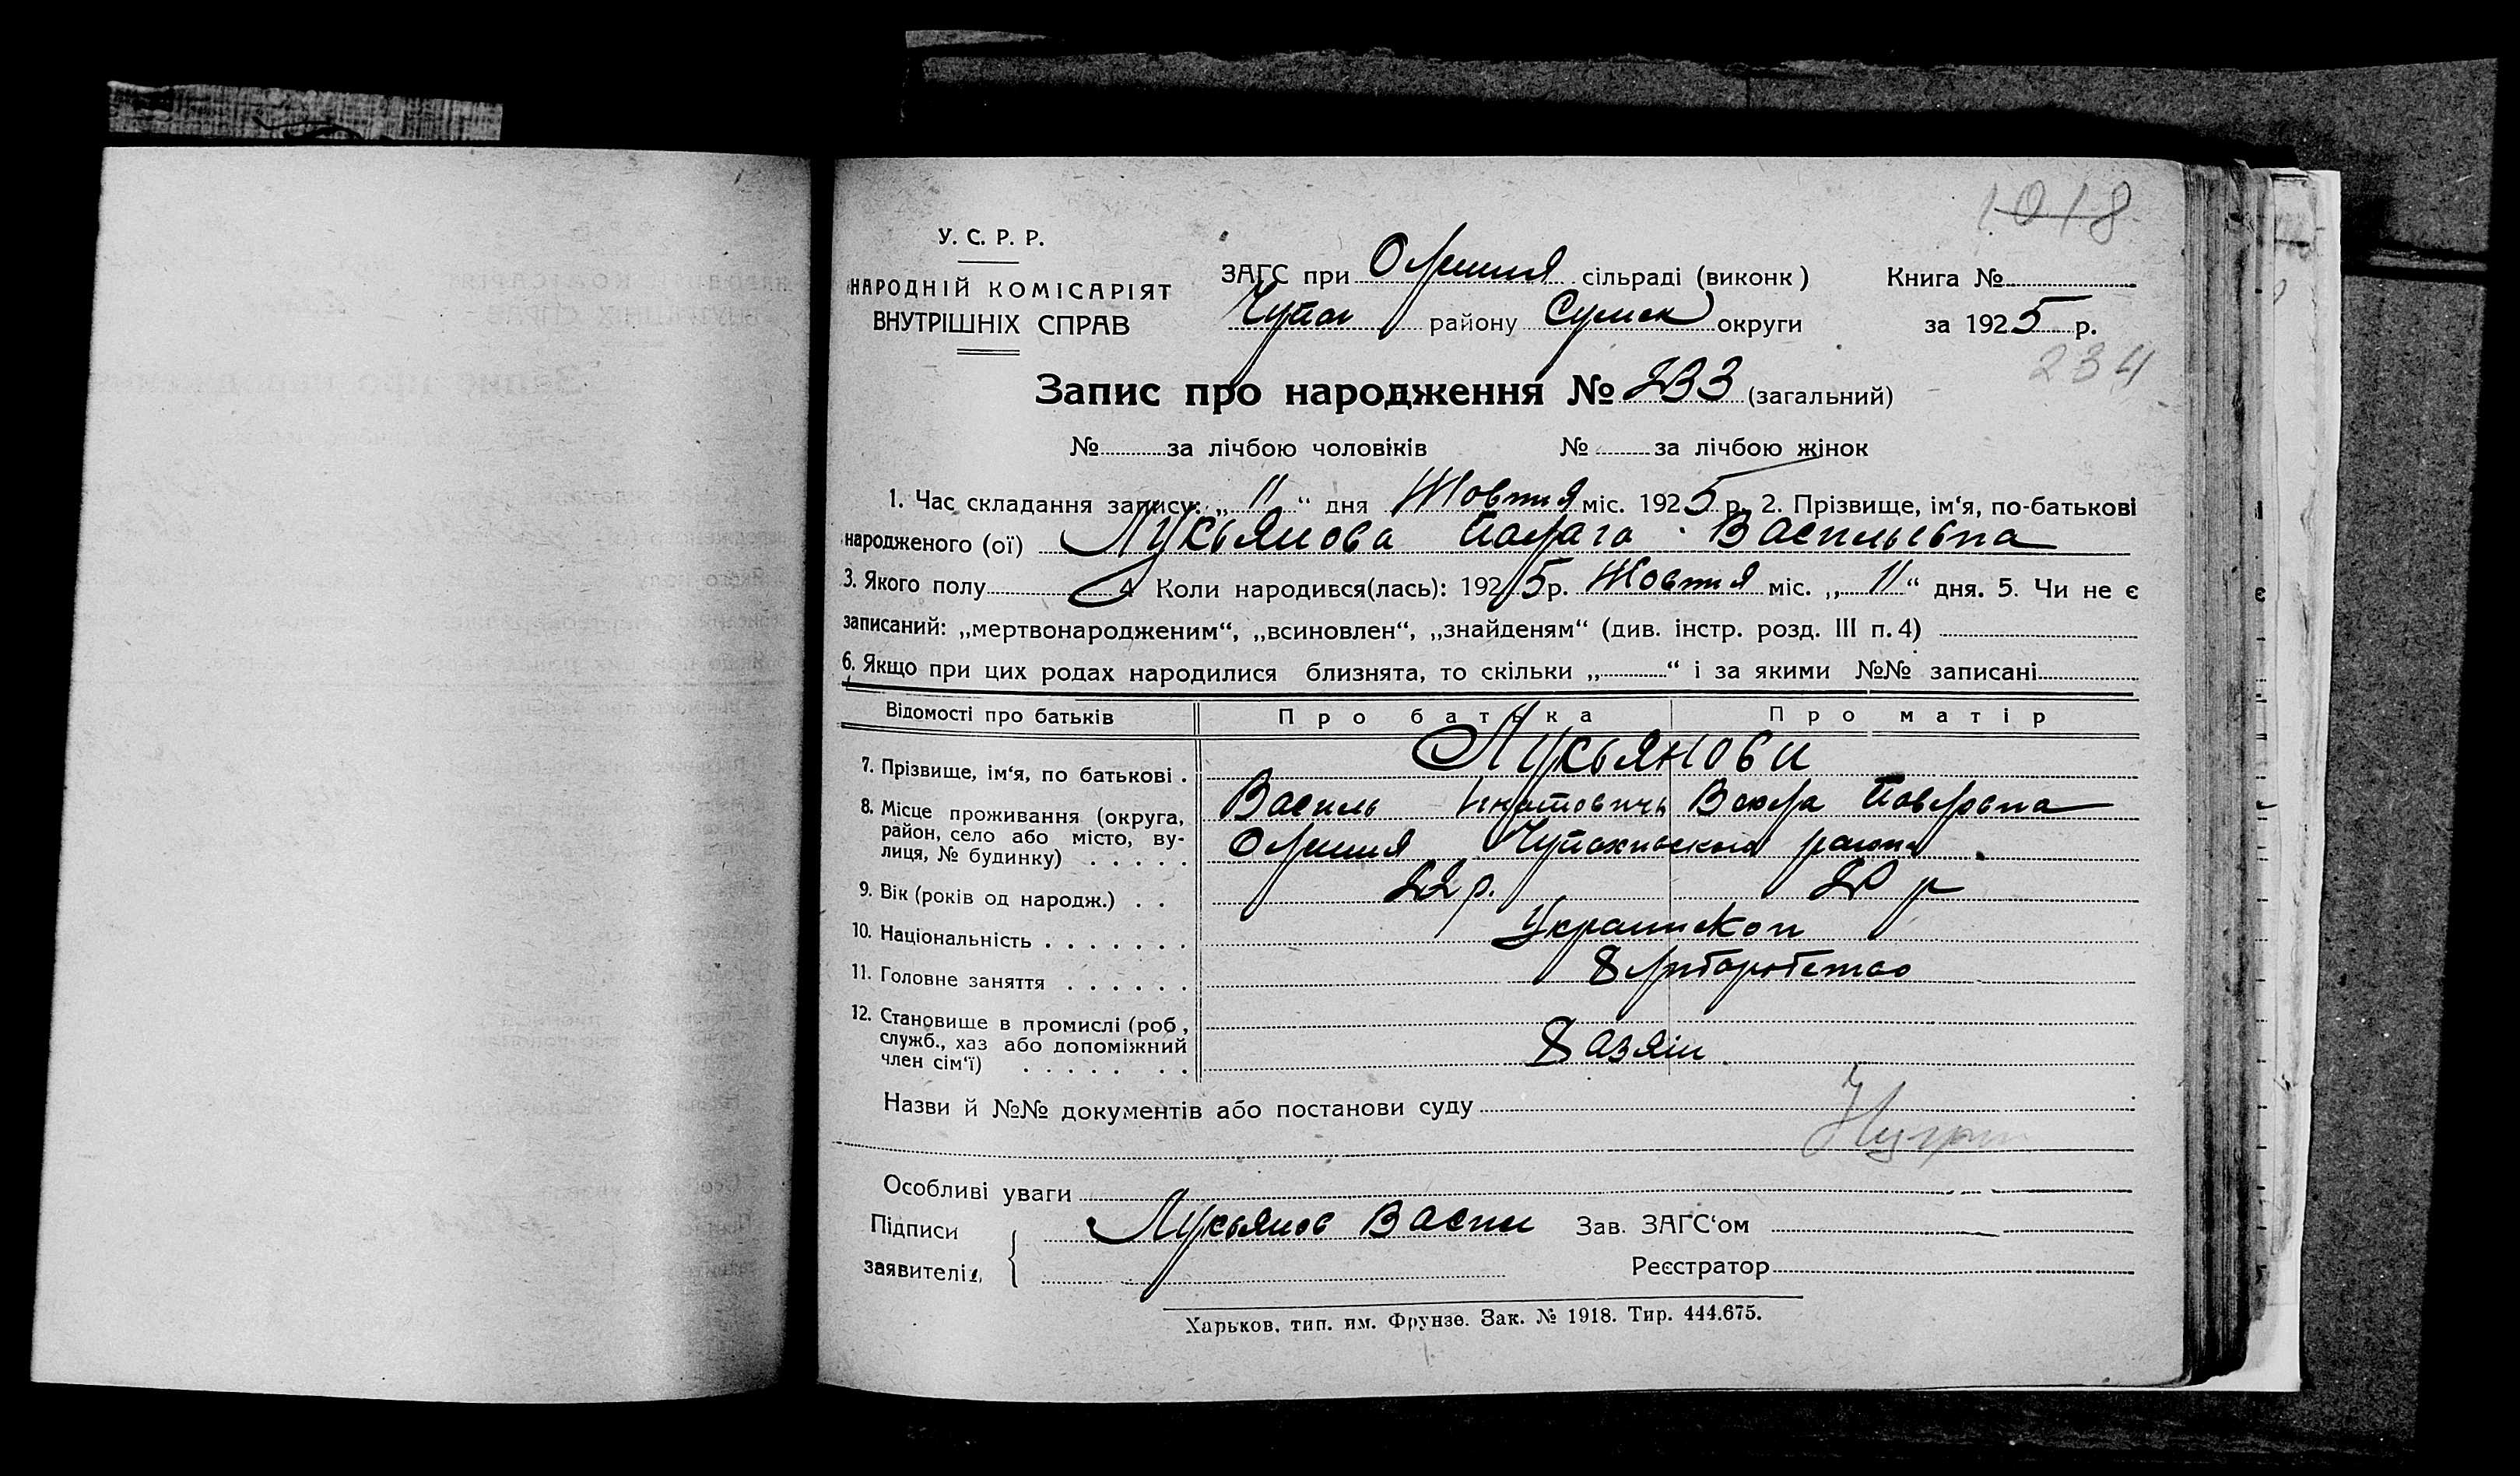 1018
У. С. Р. Р.
НАРОДНІЙ КОМІСАРІЯТ
ВНУТРІШНІХ СПРАВ
ЗАГС при Олешня сільраді (виконк)
Чупах району Сумск округи
Книга №
за 1925 р.
234
Запис про народження № 233 (загальний)
№ за лічбою чоловіків № за лічбою жінок
1. Час складання запису: „ 11 “ дня Жовтня міс. 1925 р. 2. Прізвище, ім‘я, по-батькові
народженого (ої) Лукьянова Палага Васильівна
3. Якого полу 4 Коли народився(лась): 1925 р. Жовтня міс. „ 11 “ дня. 5. Чи не є
записаний: „мертвонародженим“, „всиновлен“, „знайденям“ (див. інстр. розд. III п. 4)
6. Якщо при цих родах народилися близнята, то скільки „ “ і за якими №№ записані
Відомості про батьків Про батька Про матір
7. Прізвище, ім‘я, по батькові . Лукьянови
Василь Игнатовичь Векла Павловна
8. Місце проживання (округа,
район, село або місто, ву-
лиця, № будинку) . . . . . Олешня Чупахивского района
9. Вік (років од народж.) . . 22 р. 20 р
10. Національність . . . . . . .
11. Головне заняття . . . . . . Хлиборобство
12. Становище в промислі (роб.,
служб., хаз або допоміжний
член сім‘ї) . . . . . . . Хазяїн
Назви й №№ документів або постанови суду
Особливі уваги
Підписи
заявителів, Лукьянов Васил
Зав. ЗАГС‘ом
Реєстратор
Харьков, тип. им. Фрунзе. Зак. № 1918. Тир. 444.675.